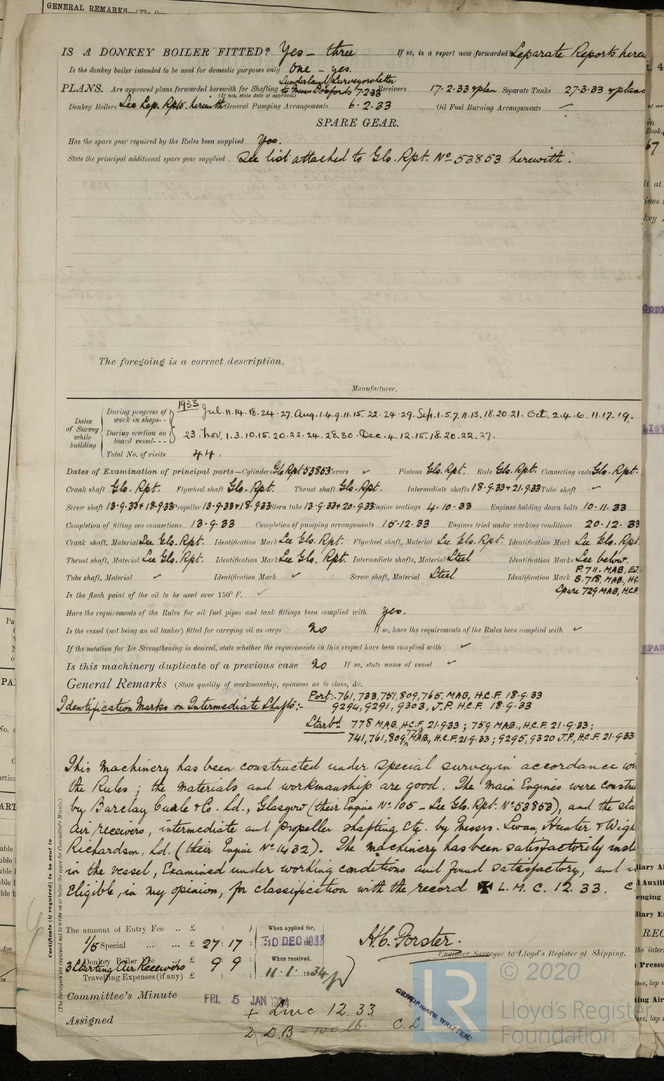 GENERAL REMARKS
IS A DONKEY BOILER FITTED? Yes – three If so, is a report now forwarded Separate Reports herew
Is the donkey boiler intended to be used for domestic purposes only One – yes.
Sunderland Surveyors letter
PLANS. Are approved plans forwarded herewith for Shafting 7.2.33 Receivers 17.2.33 & plan Separate Tanks 27.3.33 & plans
(If not, state date of approval)
Donkey Boilers See Sep. Rpts. herewith General Pumping Arrangements 6.2.33 Oil Fuel Burning Arrangements ✓
SPARE GEAR.
Has the spare gear required by the Rules been supplied Yes.
State the principal additional spare gear supplied See list attached to Glo. Rpt. No 53853 herewith.
The foregoing is a correct description,
Manufacturer.
Dates of Survey while building
During progress of work in shops - - 1933 Jul. 11.14.18.24.27. Aug. 1.4.9.11.15.22.24.29. Sep. 1.5.7.11.13.18.20.21. Oct. 2.4.6.11.17.19.
During erection on board vessel - - - 23. Nov. 1.3.10.15.20.22.24.28.30. Dec. 4.12.15.18.20.22.27.
Total No. of visits 44.
Dates of Examination of principal parts—Cylinders Glo Rpt 53853 Covers ✓ Pistons Glo. Rpt. Rods Glo. Rpt. Connecting rods Glo. Rpt.
Crank shaft Glo. Rpt. Flywheel shaft Glo. Rpt. Thrust shaft Glo. Rpt. Intermediate shafts 18.9.33 & 21.9.33 Tube shaft ✓
Screw shaft 13.9.33 & 18.9.33 Propeller 13.9.33 & 18.9.33 Stern tube 13.9.33 & 20.9.33 Engine seatings 4.10.33 Engines holding down bolts 10.11.33
Completion of fitting sea connections 13.9.33 Completion of pumping arrangements 15.12.33 Engines tried under working conditions 20.12.33
Crank shaft, Material See Glo. Rpt. Identification Mark See Glo. Rpt. Flywheel shaft, Material See Glo. Rpt. Identification Mark See Glo. Rpt.
Thrust shaft, Material See Glo. Rpt. Identification Mark See Glo. Rpt. Intermediate shafts, Material Steel Identification Marks See below
Tube shaft, Material ✓ Identification Mark ✓ Screw shaft, Material Steel Identification Mark P. 711. MAB,
S. 718, MAB,
Spare 729 MAB, H.C.F.
Is the flash point of the oil to be used over 150° F. ✓
Have the requirements of the Rules for oil fuel pipes and tank fittings been complied with yes.
Is the vessel (not being an oil tanker) fitted for carrying oil as cargo No If so, have the requirements of the Rules been complied with ✓
If the notation for Ice Strengthening is desired, state whether the requirements in this respect have been complied with ✓
Is this machinery duplicate of a previous case No If so, state name of vessel ✓
General Remarks (State quality of workmanship, opinions as to class, &c.
Identification Marks on Intermediate Shafts:- Port:- 761, 733, 751, 809, 765. MAB, H.C.F. 18.9.33
9294, 9291, 9303, J.P. H.C.F. 18.9.33
Starbd 778 MAB, H.C.F. 21.9.33; 759 MAB., H.C.F. 21.9.33;
741, 761, 809, 773 MAB, H.C.F. 21.9.33; 9295, 9320 J.P, H.C.F. 21.9.33
This machinery has been constructed under special survey in accordance wi
the Rules; the materials and workmanship are good. The main Engines were constru
by Barclay Curle & Co. Ld., Glasgow (their Engine No 105 – See Glo. Rpt. No 53853), and the sta
air receivers, intermediate and propeller shafting etc. by Messrs. Swan Hunter & Wigh
Richardson, Ld. (their Engine No 1432). The machinery has been satisfactorily inst
in the vessel, Examined under working conditions and found satisfactory, and is
Eligible, in my opinion, for classification with the record ✠ L.M.C. 12.33. C
Certificate (if required) to be sent to
(The Surveyors are requested not to write on or below the space for Committee's Minute.)
The amount of Entry Fee .. £ : :
1/5 Special ... ... £ 27 : 17
Donkey Boiler Fee
3 Starting Air Receivers £ 9 : 9
Travelling Expenses (if any) £ : :
When applied for, 30 DEC 1933
When received, 11.1.1934
H.C. Forster.
Engineer Surveyor to Lloyd's Register of Shipping.
Committee's Minute FRI. 5 JAN 1934
Assigned + LMC 12.33
2 DB C.L.
CERTIFICATE WRITTEN.
© 2020
LR
Lloyd's Register
Foundation